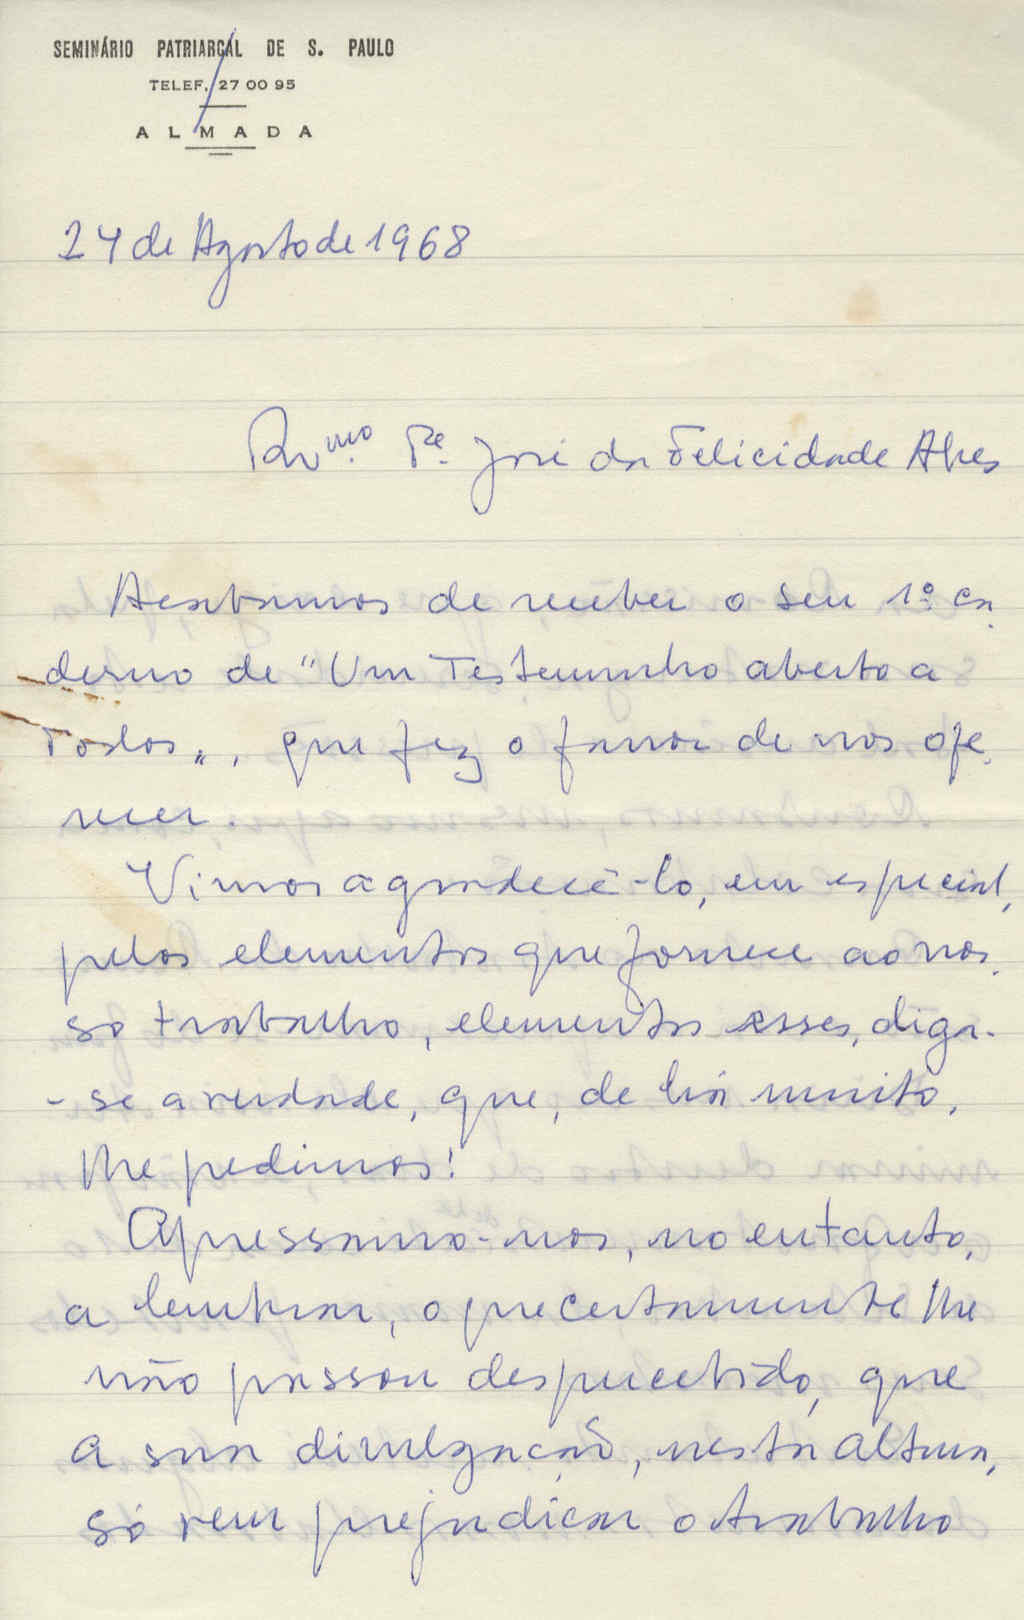 SEMINÁRIO PATRIARCAL DE S. PAULO
TELEF. 27 00 95
ALMADA
24 de Agosto de 1968
Rvmo. Pe. José da Felicidade Alves
Acabamos de receber o seu 1º ca-
derno de "Um Testemunho aberto a
Todos", que fez o favor de nos ofe-
recer.
Vimos agradecê-lo, em especial,
pelos elementos que fornece ao nos-
so trabalho, elementos esses, diga-
-se a verdade, que, de há muito,
lhe pedimos!
Apressamo-nos, no entanto,
a lembrar, o que certamente lhe
não passou despercebido, que
a sua divulgação, nesta altura,
só vem prejudicar o trabalho